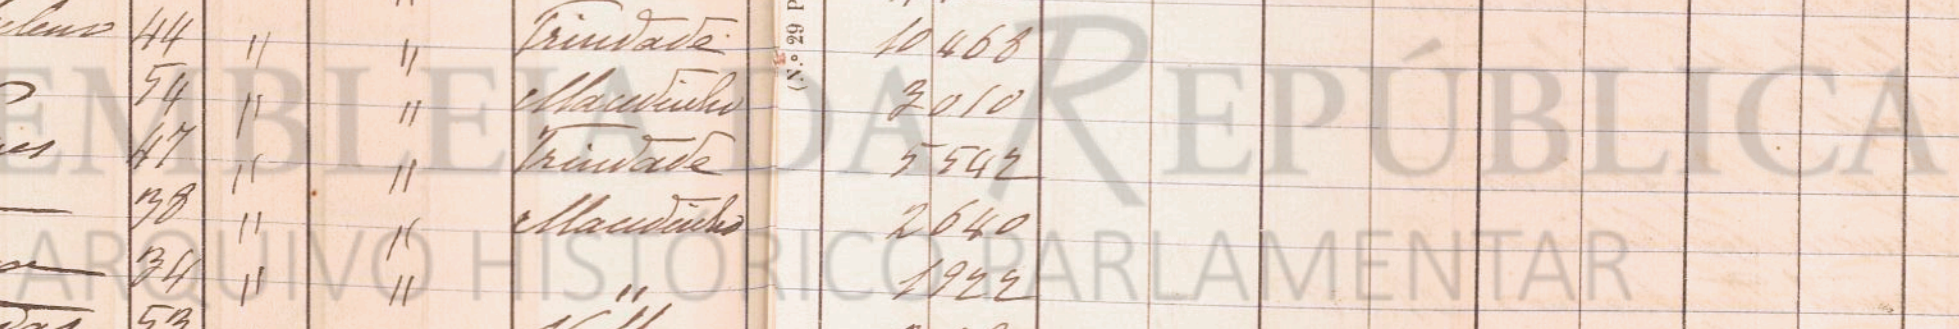 44 " " Trindade 10 468
54 " " Macedinho 3 010
47 " " Trindade 5 542
38 " " Macedinho 2 640
34 " " " 1 922
53
(N.º 29
EMBLEIA DA REPÚBLICA
ARQUIVO HISTÓRICO PARLAMENTAR